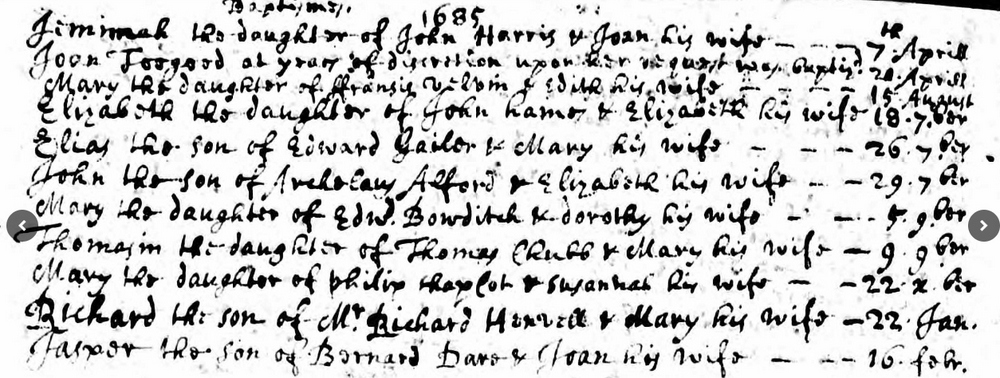 Baptismes. 1685
Jemimah the daughter of John Harris & Joan his wife — — — 7th Aprill
Joan Toogood at years of discretion upon her request was baptiz. 24 Aprill
Mary the daughter of ffrancis Velvin & Edith his wife — — — 15 August
Elizabeth the daughter of John hames & Elizabeth his wife 18. 7.ber
Elias the son of Edward Gailer & Mary his wife — — — 26. 7 ber
John the son of Archelaus Alford & Elizabeth his wife — — 29. 7 ber
Mary the daughter of Edw. Bowditch & dorothy his wife — — 5. 9 ber
Thomasin the daughter of Thomas Chubb & Mary his wife — 9. 9 ber
Mary the daughter of philip & Susannah his wife — 22 x ber
Richard the son of Mr Richard Henvill & Mary his wife — 22. Jan.
Jasper the Son of Bernard Dare & Joan his wife — — — 16. febr.